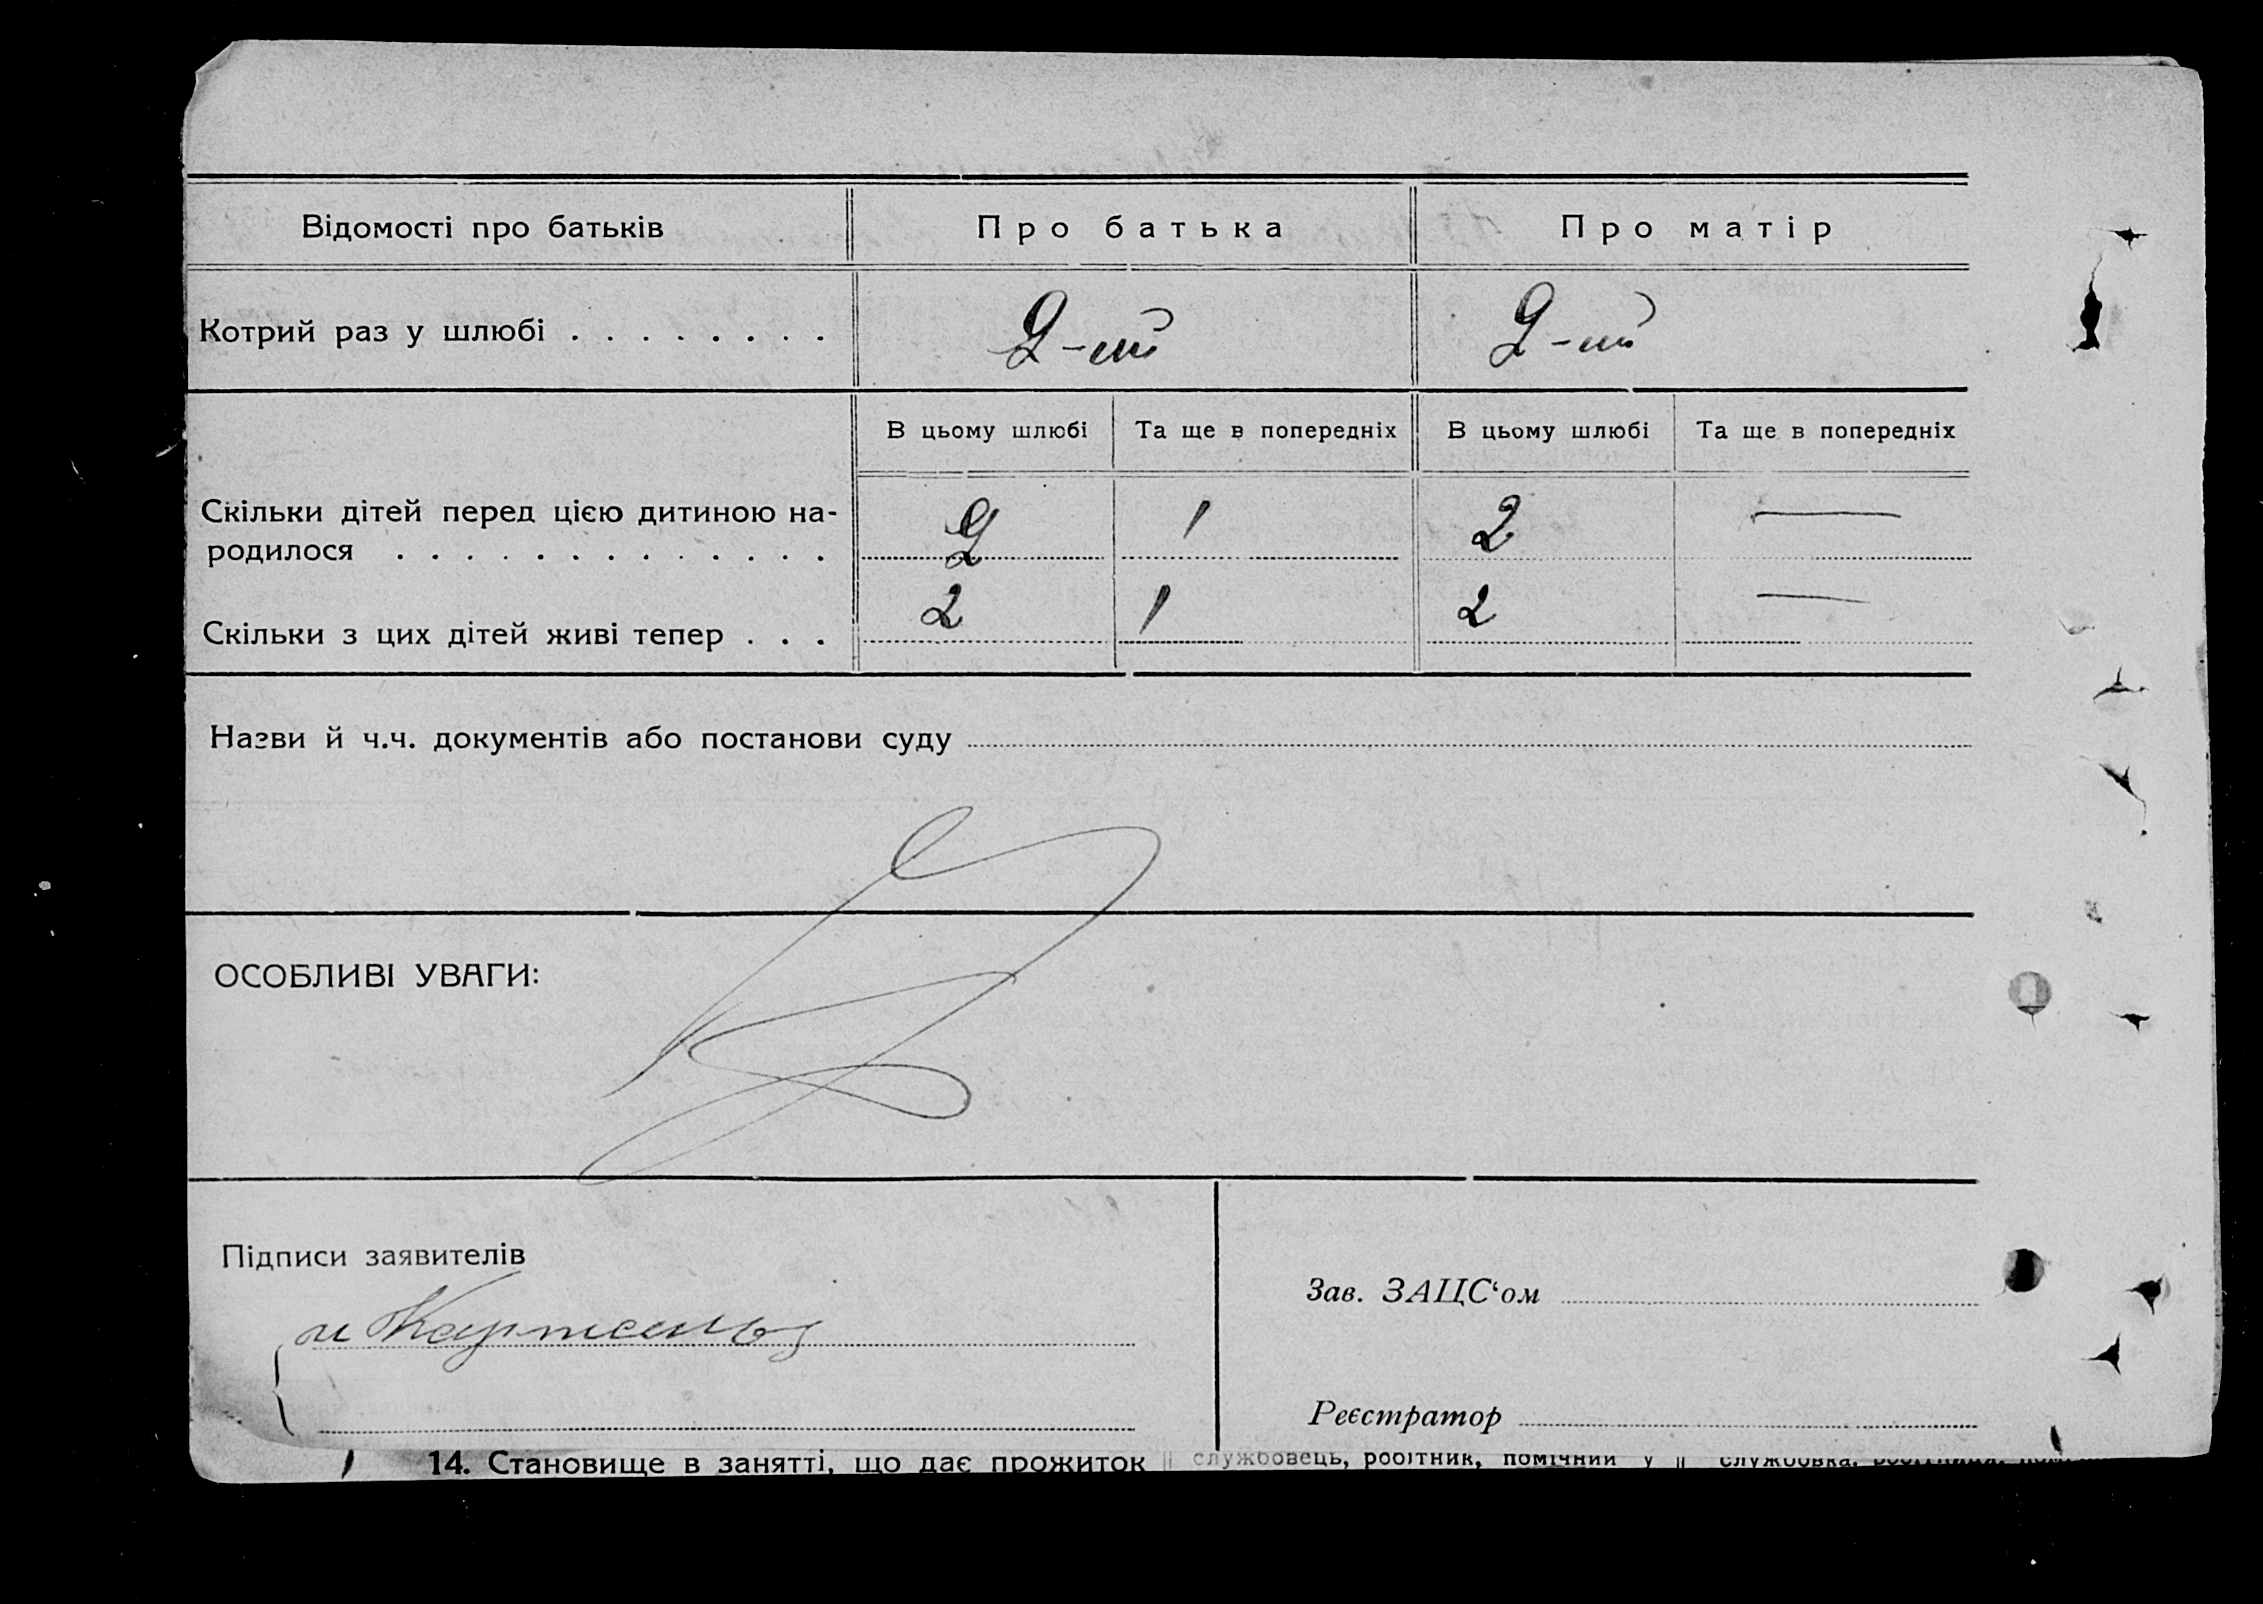 Відомості про батьків Про батька Про матір
Котрий раз у шлюбі . . . . . . . . 2-ий 2-ий
В цьому шлюбі Та ще в попередніх В цьому шлюбі Та ще в попередніх
Скільки дітей перед цією дитиною на-
родилося . . . . . . . . . . . . . 2 1 2 —
Скільки з цих дітей живі тепер . . . 2 1 2 —
Назви й ч.ч. документів або постанови суду
ОСОБЛИВІ УВАГИ:
Підписи заявителів
Зав. ЗАЦС‘ом
Реєстратор
14. Становище в занятті, що дає прожиток службовець, робітник, помічний у службовка,